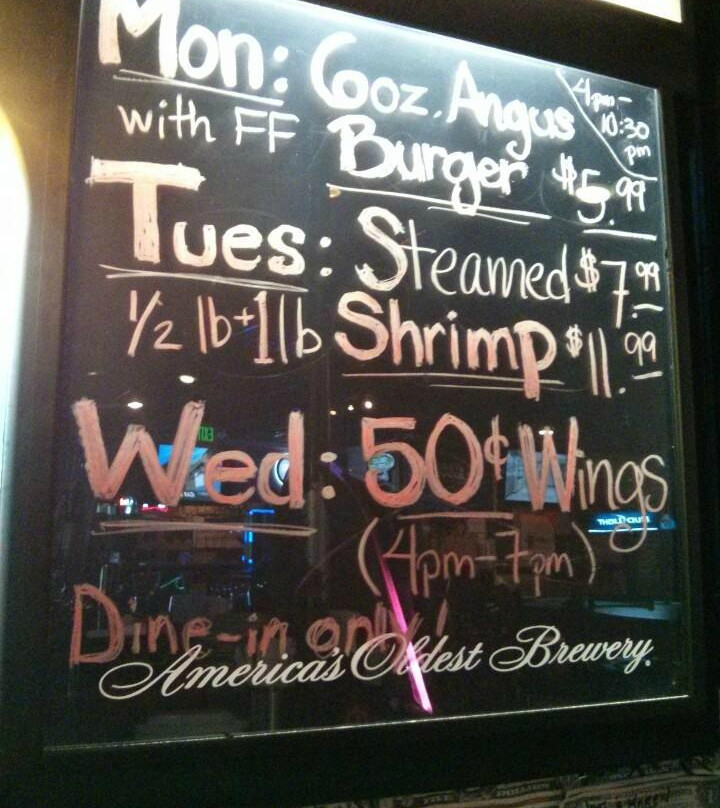 Mon: 6oz. Angus
4pm-
10:30
pm
with FF Burger $5.99
Tues: Steamed $7.99
1/2 lb + 1 lb Shrimp $11.99
Wed: 50¢ Wings
(4pm-7pm)
Dine-in only!
America's Oldest Brewery.
EXIT